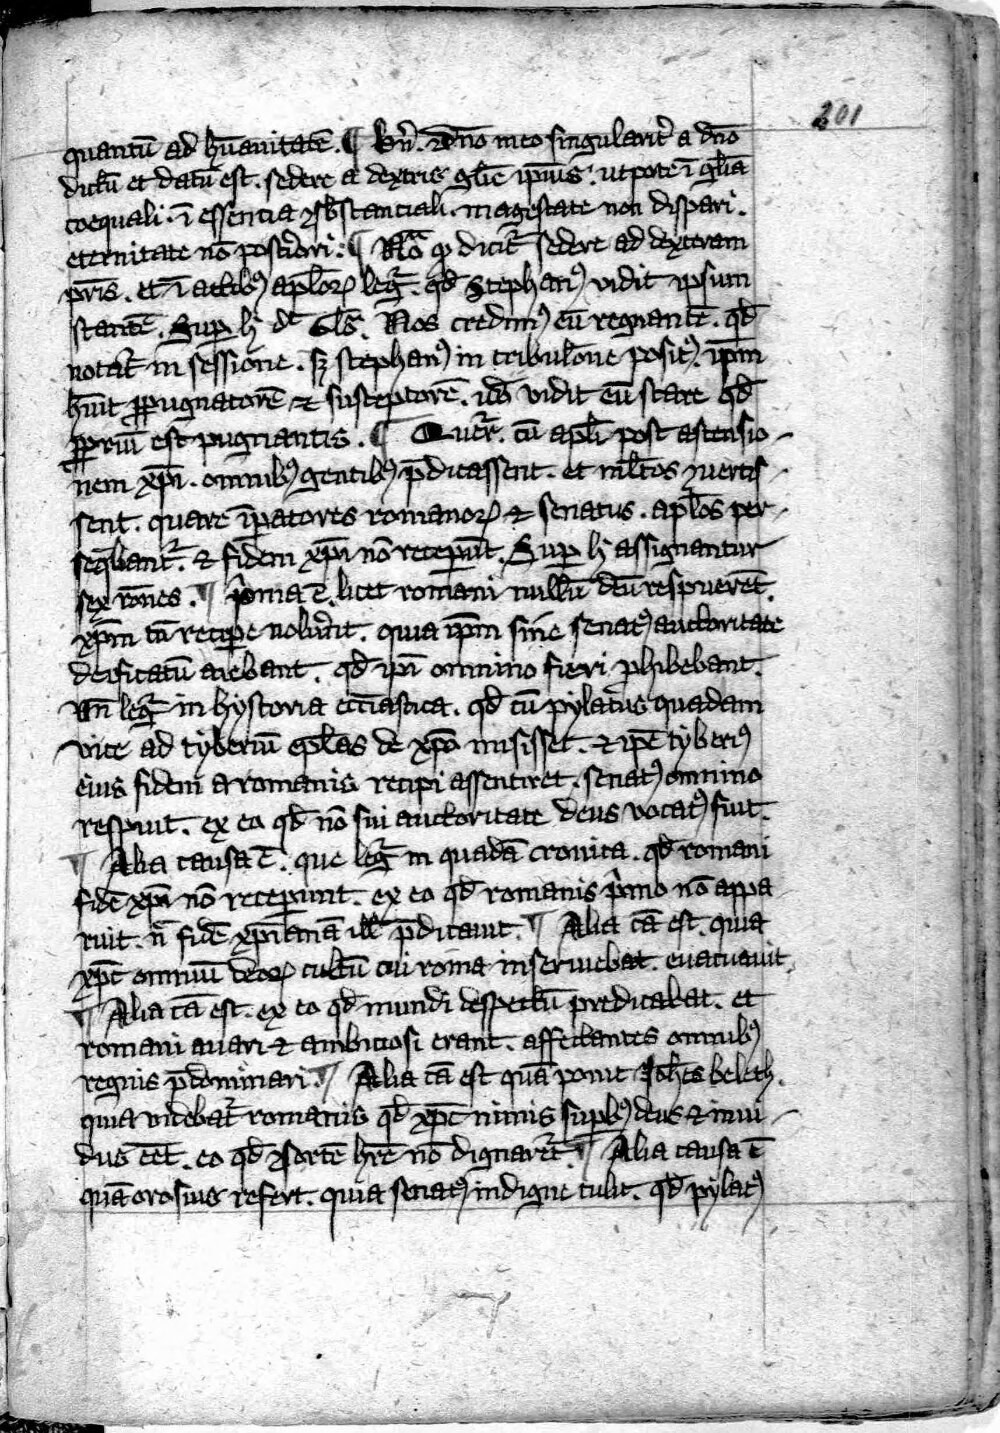 201
quantū ad hūanitatē. ¶ b'n̄. dn̄o meo singularit' a dn̄o
dictū et datū est. sedere a dextris gl'ie ip̄ius. utpote ī gl'ia
coequali. ī essencia ꝯsb̄stanciali. magestate non dispari.
eternitate nō post'iori. ¶ Nōa ꝙ dicit' sedere ad dexteram
pr̄is. et ī actibꝰ apl'oꝝ leg'. qd̄ Stephanꝰ vidit ip̄sum
stantē. Sup̱ h' dt̄ Gl'. Nos credimꝰ eū regnantē. qd̄
notat' in sessione. sꝫ stephanꝰ in tribul'one positꝰ. ip̄m
h̄uit ꝓpugnatorē ⁊ susceptorē. iō vidit eū stare qd̄
ꝓpriū est pugnantis. ¶ Quer'. cū apl'i post ascensio-
nem xp̄i. omnibꝰ gentibꝰ p̄dicassent. et ml'tos ꝯuertis-
sent. quare īpatores romanoꝝ ⁊ senatus. apl'os per-
seq̄bant'. ⁊ fidem xp̄i nō recep̱unt. Sup̱ h' assignantur
sex rōnes. ¶ p'ma ē. licet romani nullū deū respuerēt.
xp̄m tn̄ recip̱e nolu'nt. quia ip̄m sine senatꝰ auctoritate
deificatū aiebant. qd̄ ip̄i omnino fieri ꝓhibebant.
Un̄ leg' in hystoria ecc̄iastica. qd̄ cū pylatus quadam
vice ad tyberiū epl'as de xp̄o misisset. ⁊ ip̄e tyberiꝰ
eius fidem a romanis recipi assentiret. senatꝰ omnino
respuit. ex eo qd̄ nō sui auctoritate deus vocatꝰ fuit.
¶ Alia causa ē. que leg' in quadā cronica. qd̄ romani
fidē xp̄i nō recep̱unt. ex eo qd̄ romanis p'mo nō appa
ruit. n̄ fidē xp̄ianā ill' p̄dicauit. ¶ Alia cā est. quia
xp̄c omniū deoꝝ cultū cui roma inseruiebat. euacuauit.
¶ Alia cā est. ex eo qd̄ mundi despectū predicabat. et
romani auari ⁊ ambiciosi erant. affectantes omnibꝰ
regnis p̄dominari. ¶ Alia cā est quā ponit Joh̄es beleth.
quia videbat' romanis qd̄ xp̄c nimis sup̱bꝰ deus ⁊ inui-
dus eēt. eo qd̄ ꝯsortē h̄re nō dignaret'. ¶ Alia causa ē
quā orosius refert. quia senatꝰ indigne tulit. qd̄ pylatꝰ